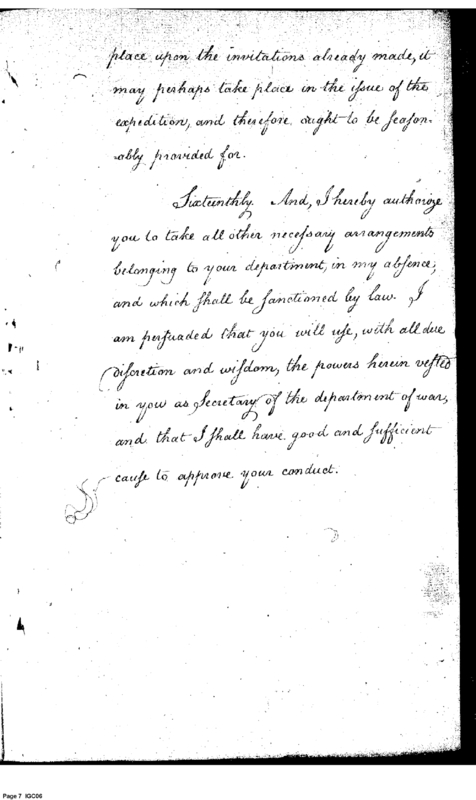 place upon the invitations already made, it
may perhaps take place in the issue of the
expedition, and therefore ought to be season-
ably provided for.
Sixteenthly. And, I hereby authorize
you to take all other necessary arrangements
belonging to your department, in my absence,
and which shall be sanctioned by law. I
am persuaded that you will use, with all due
discretion and wisdom, the powers herein vested
in you as Secretary of the department of war,
and that I shall have good and sufficient
cause to approve your conduct.
Page 7 IGC06